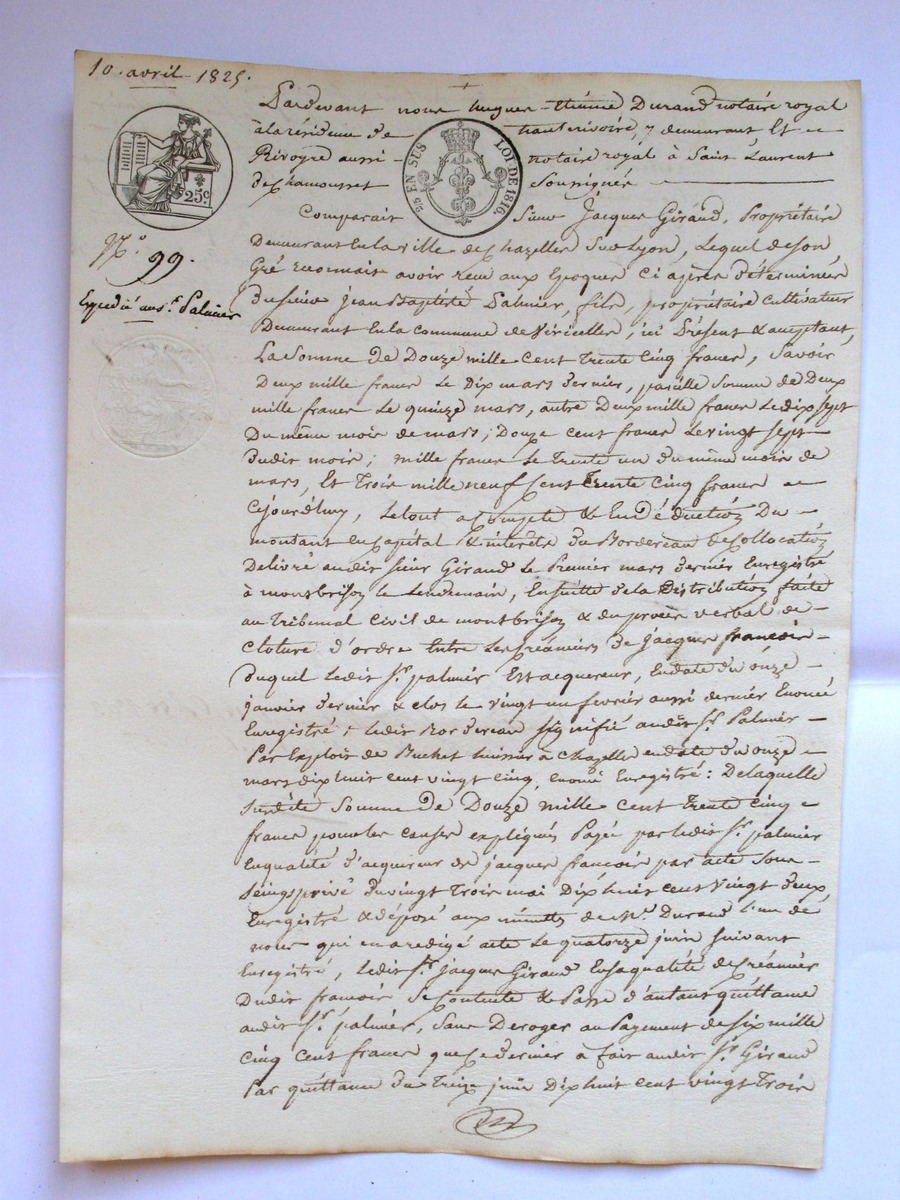 10. avril 1825.
Pardevant nous hugues-Etienne Durand notaire royal
à la résidence de hauterivoire, y demeurant Et
Rivoyre aussi notaire royal à Saint Laurent
de Chamousset Soussignés
EN SUS LOI DE 1816
25c
Comparait Sieur Jacques Giraud, Propriétaire
Demeurant En la ville de Chazelles Sur Lyon, Lequel de Son
N.° 99.
Gré reconnait avoir reçu aux Epoques Ci après déterminées
Expedié au s.r Palmier
du Sieur jean Baptiste Palmier, fils, propriétaire cultivateur
Demeurant En la commune de Viricelles, ici Présent & acceptant,
La Somme de Douze mille cent trente cinq francs, Savoir
Deux mille francs Le Dix mars dernier, pareille Somme de Deux
mille francs Le quinze mars, autre Deux mille francs Le dix Sept
Du même mois de mars; Douze cent francs Le vingt sept
dudit mois; mille francs Le Trente un du même mois de
mars, Et Trois mille neuf cent Trente Cinq francs
Cejourd'huy, Le tout a compte & En déduction Du
montant en Capital & intérêts du Bordereau de Collocation
Delivré audit Sieur Giraud Le Premier mars dernier Enregistré
à montbrison le Lendemain, En suitte de la Distribution faite
au Tribunal Civil de montbrison & du procès verbal de
cloture d'ordre Entre Les Créanciers de jacques francois
duquel Ledit S.r palmier Est acquereur, En date du onze
janvier dernier & clos le vingt un fevrier aussi dernier Enoncé
Enregistré; Ledit Bordereau signifié audit S.r Palmier
Par Exploit de Buchet huissier à Chazelle en date du onze
mars dix huit cent vingt cinq, enoncé Enregistré: De laquelle
Susdite Somme de Douze mille cent trente cinq
francs pour les causes expliquées Payé par Ledit S.r palmier
En qualité d'acquereur de jacques francois par acte Sous
Seing privé du vingt trois mai Dix huit cent vingt deux,
Enregistré & déposé aux minuttes de M.e Durand l'un de
nous qui en a redigé acte Le quatorze juin suivant
Enregistré, Ledit S.r jacques Giraud En sa qualité de Créancier
Dudit francois Se Contente & Passe d'autant quittance
audit S.r palmier, Sans Deroger au Payement de Six mille
cinq cent francs que Ce dernier à fait audit S.r Giraud
Par quittance du Treize juin Dix huit cent vingt Trois